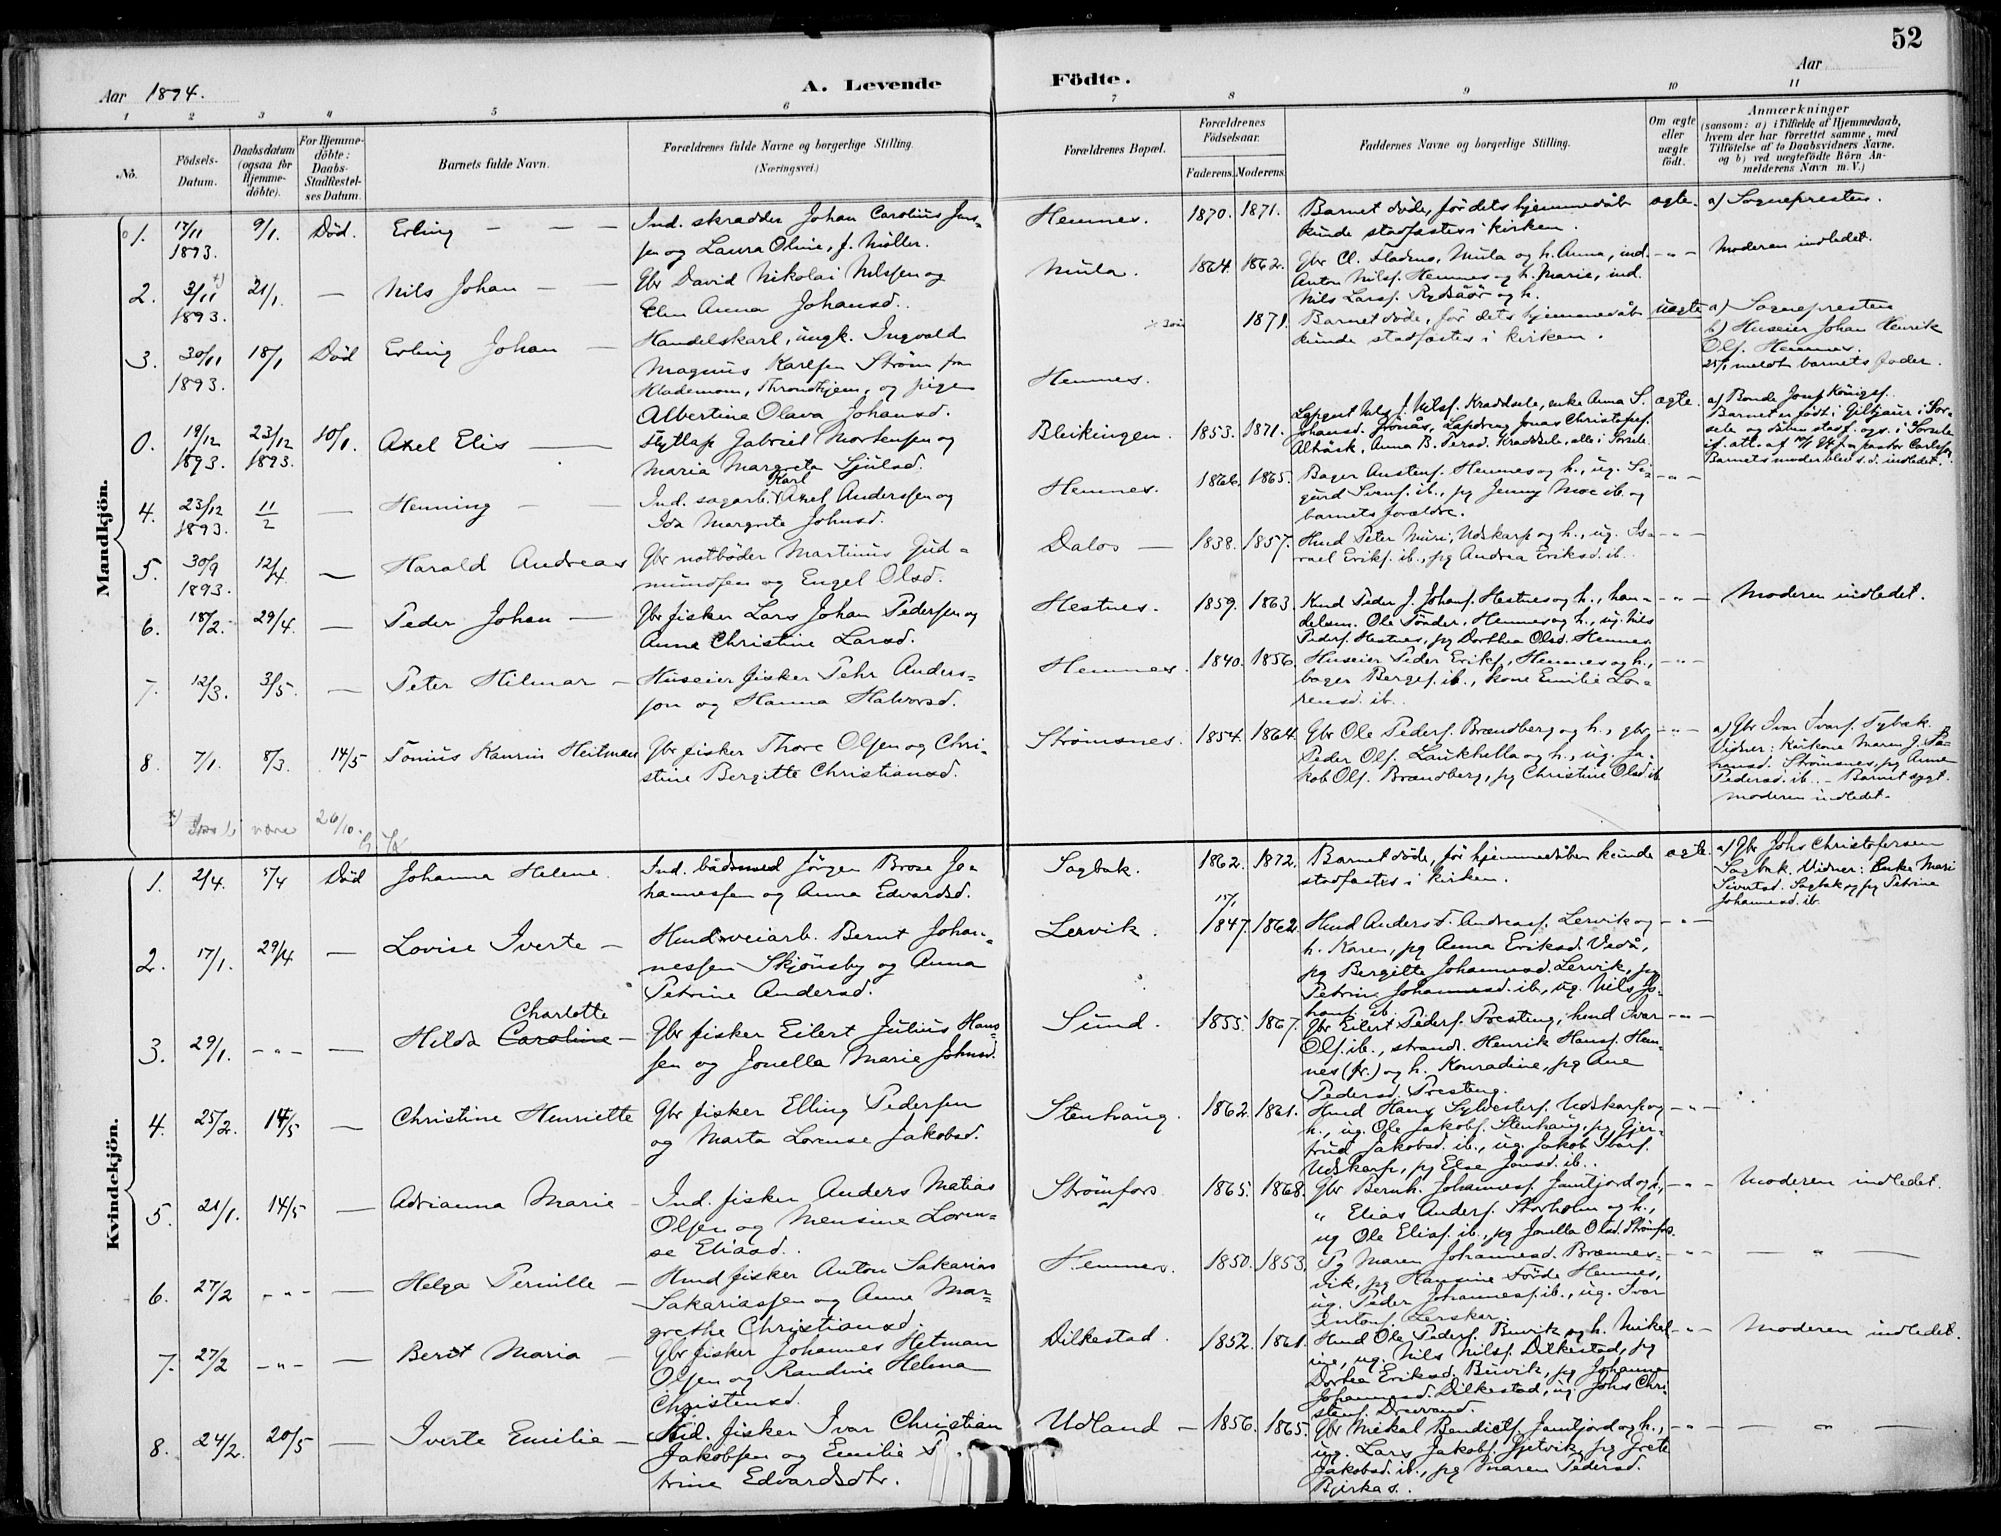 52
Aar 1894.
A. Levende Födte.
Aar
1 2 3 4 5 6 7 8 9 10 11
No.
Födsels-Datum.
Daabsdatum (ogsaa for Hjemmedöbte).
For Hjemmedöbte: Daabs-Stadfæstelses Datum.
Barnets fulde Navn.
Forældrenes fulde Navne og borgerlige Stilling.
(Næringsvei.)
Forældrenes Bopæl.
Forældrenes Födselsaar.
Faderens. Moderens.
Faddernes Navne og borgerlige Stilling.
Om ægte eller uægte födt.
Anmærkninger
(saasom: a) i Tilfælde af Hjemmedaab, hvem der har forrettet samme, med Tilföielse af to Daabsvidners Navne, og b) ved uægtefödte Börn Anmelderens Navn m. V.)
Mandkjön.
1. 17/11 1893. 9/1. Död. Erling
Ind. skrædder Johan Carolius Jens-
sen og Laura Oline, f. Müller.
Hemnes. 1870. 1871.
Barnet döde, för dets hjemmedåb
kunde stadfæstes i kirken.
ægte. a) Sognepresten.
2. 3/11 1893. 21/1. — Nils Johan
Gbr David Nikolai Nilssen og
Elen Anna Johansd.
Mula. 1864. 1862.
Gbr Cl. Stadmo, Mula og h. Anna, ind.
Anton Nilss. Hemnes og h. Marie, ind.
Nils Larss. og h.
Moderen indledet.
3. 30/11 1893. 18/1 Död Erling Johan
Handelskarl, ungk. Ingvald
Magnus Karlsen Ström fra
Hlademoen, Throndhjem, og pige
Albertine Olava Johansd.
Hemnes. 1871.
Barnet döde, för dets hjemmedåb
kunde stadfæstes i kirken.
uægte a) Sognepresten
b) Huseier Johan Henrik
Ols. Hemnes.
25/1 meldt barnets fader.
0. 19/12 1893. 23/12 1893. 10/1. Axel Elis
Flytlap Gabriel Mortensen og
Maria Margreta Sjulsd.
Bleikingen. 1853. 1871.
Nilss. Kraddsele, enke Anna S.
Johansd. Grönås, Lapdreng Jonas Christophers.
Altråsk, Anna B. Persd. Kraddsele, alle i Sorsele.
ægte. a) Bonde Josef Königss.
Barnet er födt i Giltjaur i Sor-
sele og dåben stadf. ogs. i Sorsele
if. att. af pastor Carlsson.
Barnets moder blev s.d. indledet.
4. 23/12 1893. 11/2 — Henning
Ind. sagarb. Karl Axel Anderssen og
Ida Margrete Johnsd.
Hemnes. 1866. 1865.
Bager Austens. Hemnes og h., ug. Si-
gurd Svens. ib., pg Jenny Moe ib. og
barnets forældre.
5. 30/9 1893. 12/4. — Harald Andreas
Gbr notböder Martinus Gud-
mundsen og Engel Olsd.
Dalos — 1838. 1857.
Hmd Peter Muri, Udskarp og h., ug. Is-
rael Eriks. ib., pg Andrea Eriksd. ib.
6. 18/2. 29/4. — Peder Johan
Gbr fisker Lars Johan Pedersen og
Anne Christine Larsd.
Hestnes. 1859. 1863.
Hmd Peder J. Johans. Hestnes og h., han-
delsm. Ole Tönder, Hemnes og h., ug. Nils
Peders. Hestnes, pg Dorthea Olsd. Hemnes.
Moderen indledet.
7. 12/3. 3/5. — Peter Hilmar
Huseier fisker Pehr Anders-
son og Hanna Halvorsd.
Hemnes. 1840. 1856.
Huseier Peder Eriks. Hemnes og h.,
bager Berges. ib., kone Emilie Lo-
rensd. ib.
8. 7/1. 8/3. 14/5 Tonius Kanrin Heitman
Gbr fisker Thore Olsen og Chri-
stine Bergitte Christiansd.
Strömsnes. 1854. 1864.
Gbr Ole Peders. Brændberg og h., gbr
Peder Ols. Laukhella og h., ug. Ja-
kob Ols. Brændberg, pg Christine Olsd ib
a) Gbr Ivar Ivars. Tybæk.
Vidner: Kårkone Maren J. Jo-
hansd. Strömsnes, pg Anne
Pedersd. ib. — Barnet sygt.
Moderen indledet.
26/10
Kvindekjön.
1. 2/4. 5/4 Död Johanna Helene.
Ind. bådsmed Jörgen Brose Jo-
hannessen og Anna Edvardsd.
Sagbak. 1862. 1872.
Barnet döde, för hjemmedåben kunde
stadfæstes i kirken.
ægte. a) Gbr Johs Christofersen
Sagbak. Vidner: Enke Mari
Sivertsd. Sagbak, pg Petrine
Johannesd. ib.
2. 17/1. 29/4 — Lovise Iverte —
Hmd veiarb. Bernt Johan-
nessen Skjönsby og Anna
Petrine Andersd.
Lervik. 1847. 1862.
Hmd Anders T. Andreass. Lervik og
h. Karen, pg Anna Eriksd. Vedå,
pg Bergitte Johannesd. Lervik, pg
Petrine Johannesd. ib., ug. Nils Jo-
hans. ib.
3. 29/1. Hilda Charlotte Caroline —
Gbr fisker Eilert Julius Hans-
sen og Jonella Marie Johnsd.
Sund. 1855. 1867.
Gbr Eilert Peders. Presteng, hmd Ivar
Ols. ib., strands. Henrik Hans. Hem-
nes (fr.) og h. Konradine, pg Ane
Pedersd. Presteng.
4. 25/2. 14/5 — Christine Henriette
Gbr fisker Elling Pedersen
og Marta Lorense Jakobsd.
Stenhaug. 1862. 1861.
Hmd Hans Sylvesters. Udskarp og
h., ug. Ole Jakobs. Stenhaug, pg Gjer-
trud Jakobsd. ib., ug. Jakob Ivars.
Udskarp, pg Else Jonsd. ib.
5. 21/1. 14/5 — Adrianna Marie —
Ind. fisker Anders Matias
Olsen og Mensine Loren-
se Eliasd.
Strömfors. 1865. 1868.
Gbr Bernh. Johanness. Jamtjord og h.,
" Elias Anders. Storholm og h.,
ug Ole Elias. ib., pg Jonella Olsd. Strömfors.
Moderen indledet.
6. 27/2 Helga Pernille —
Hmd fisker Anton Sakarias
Sakariassen og Anne Mar-
grethe Christiansd.
Hemnes. 1850. 1853.
Pg Maren Johannesd. Brænnes-
vik, pg Hansine Förde Hemnes,
ug. Peder Johanness. ib., ug. Ivar
Antons. Lerskar.
— " —
7. 27/2 Berit Maria —
Gbr fisker Johannes Hetman
Olsen og Randine Helena
Christensd.
Dilkestad. 1852. 1861.
Hmd Ole Peders. Buvik og h. Mikal-
ine, ug. Nils Nilss. Dilkestad, pg
Dorthea Eriksd. Buvik, pg Johanna
Johannesd. Dilkestad, ug. Johs Chri-
stens. Drevvand.
Moderen indledet.
8. 24/2. 20/5 — Iverte Emilie —
Ind. fisker Ivar Christian
Jakobsen og Emilie P
trine Edvardsdtr.
Udland — 1856. 1865.
Gbr Mekal Bendicts. Jamtjord og h.,
ug. Lars Jakobs. Gjetvik, pg Grete
Jakobsd. ib., pg Maren Pedersd.
Bjerkås.
— " —